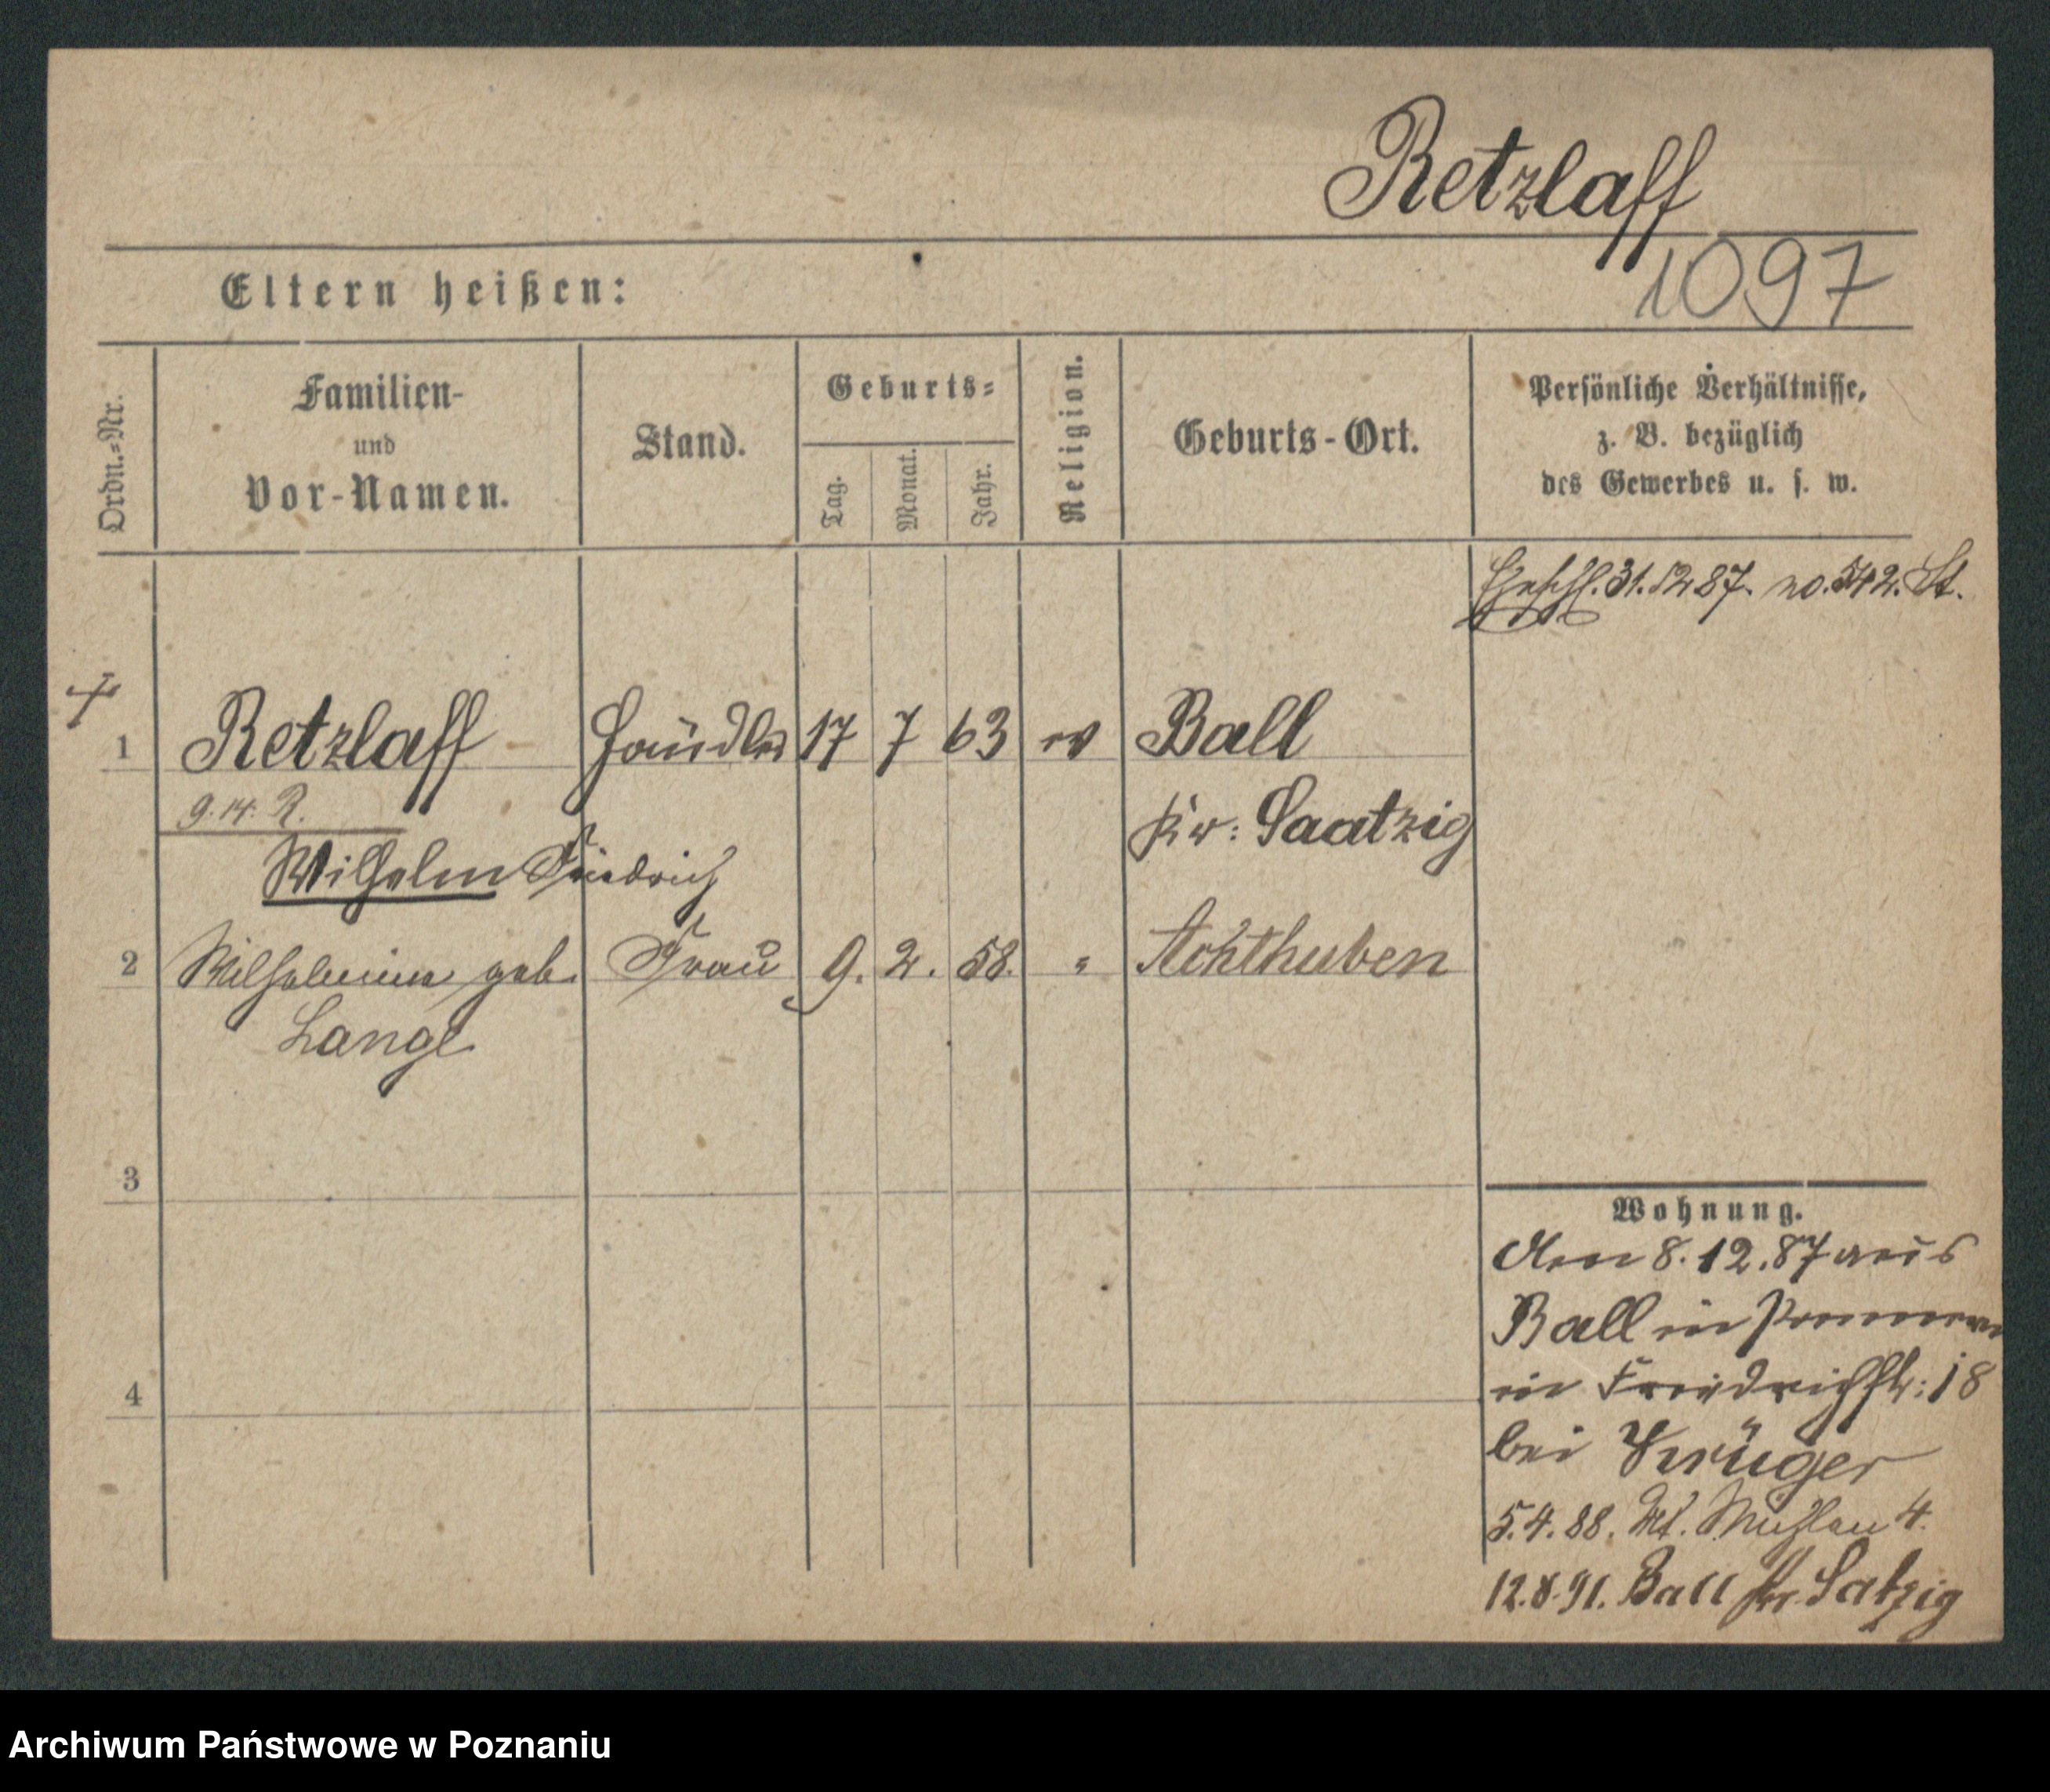 Retzlaff
1097
Eltern heißen:
Ordn.-Nr.
Familien-
und
Vor-Namen.
Stand.
Geburts-
Tag.
Monat.
Jahr.
Religion.
Geburts-Ort.
Persönliche Verhältnisse,
z. B. bezüglich
des Gewerbes u. s. w.
31.12.87. no. 542. St.
1 Retzlaff Händler 17 7 63 ev Ball
9.14. R.
Kr: Saatzig
Wilhelm Friedrich
2 Wilhelmine geb. Frau 9. 2. 58. " Achthuben
Lange
3
4
Wohnung.
den 8.12.87 aus
Ball in Pommern
in Friedrichstr: 18
bei Krüger
5.4.88. Mühlen 4.
12.8.91. Ball Kr. Satzig
Archiwum Państwowe w Poznaniu